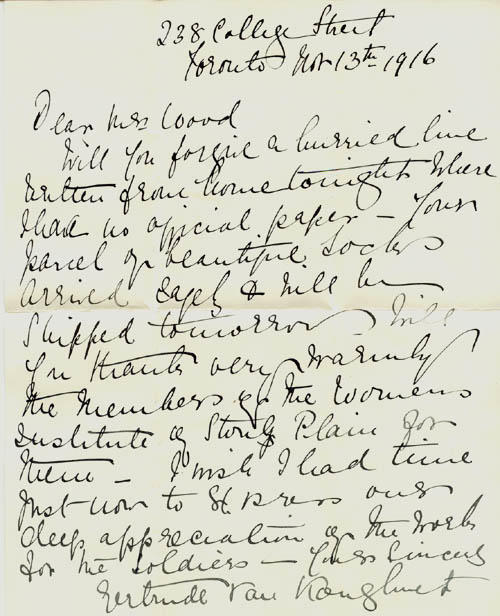 238 College Street
Toronto Nov 13th 1916
Dear Mrs Wood
Will you forgive a hurried line
written from home tonight where
I had no official paper – Your
parcel of beautiful socks
arrived safely & will be
shipped tomorrow – Will
you thank very warmly
the members of the Womens
Institute of Stony Plain for
them – I wish I had time
just now to express our
deep appreciation of the work
for the soldiers – Yours Sincerely
Gertrude Van Koughnet